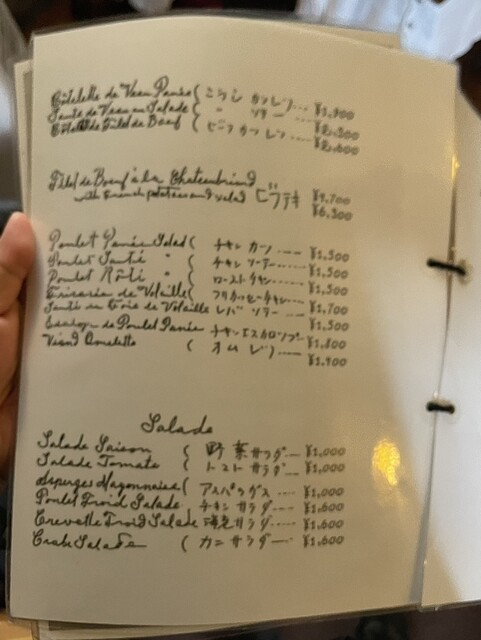 Côtelette de Veau Panée ( こうし カツレツ... ¥1,900
Sauté de Veau au Salade ( 〃 ソテー ¥2,300
de Filet de Boeuf ( ビーフ カツレツ ¥2,600
Filet de Boeuf à la Chateaubriand ビフテキ ¥4,700
with French potatoes and salad ¥6,300
Poulet Panée Salad ( チキン カツ .... ¥1,500
Poulet Sauté 〃 ( チキン ソテー...... ¥1,500
Poulet Rôti 〃 ( ロースト チキン ...... ¥1,500
de Volaille ( フリカッセーチキン...... ¥1,700
Sauté de Volaille レバー ソテー...... ¥1,500
de Poulet Panée チキンエスカロップ ¥1,800
Omelette ( オムレツ..... ¥1,400
Salade
Salade Saison ( 野菜サラダー ¥1,000
Salade Tomate ( トマト サラダー ¥1,000
Asperges Mayonnaise ( アスパラガス .... ¥1,000
Poulet Froid Salade チキン サラダー ¥1,600
Crevette Froid Salade サラダー ¥1,600
Crabe Salade ( カニ サラダー ¥1,600